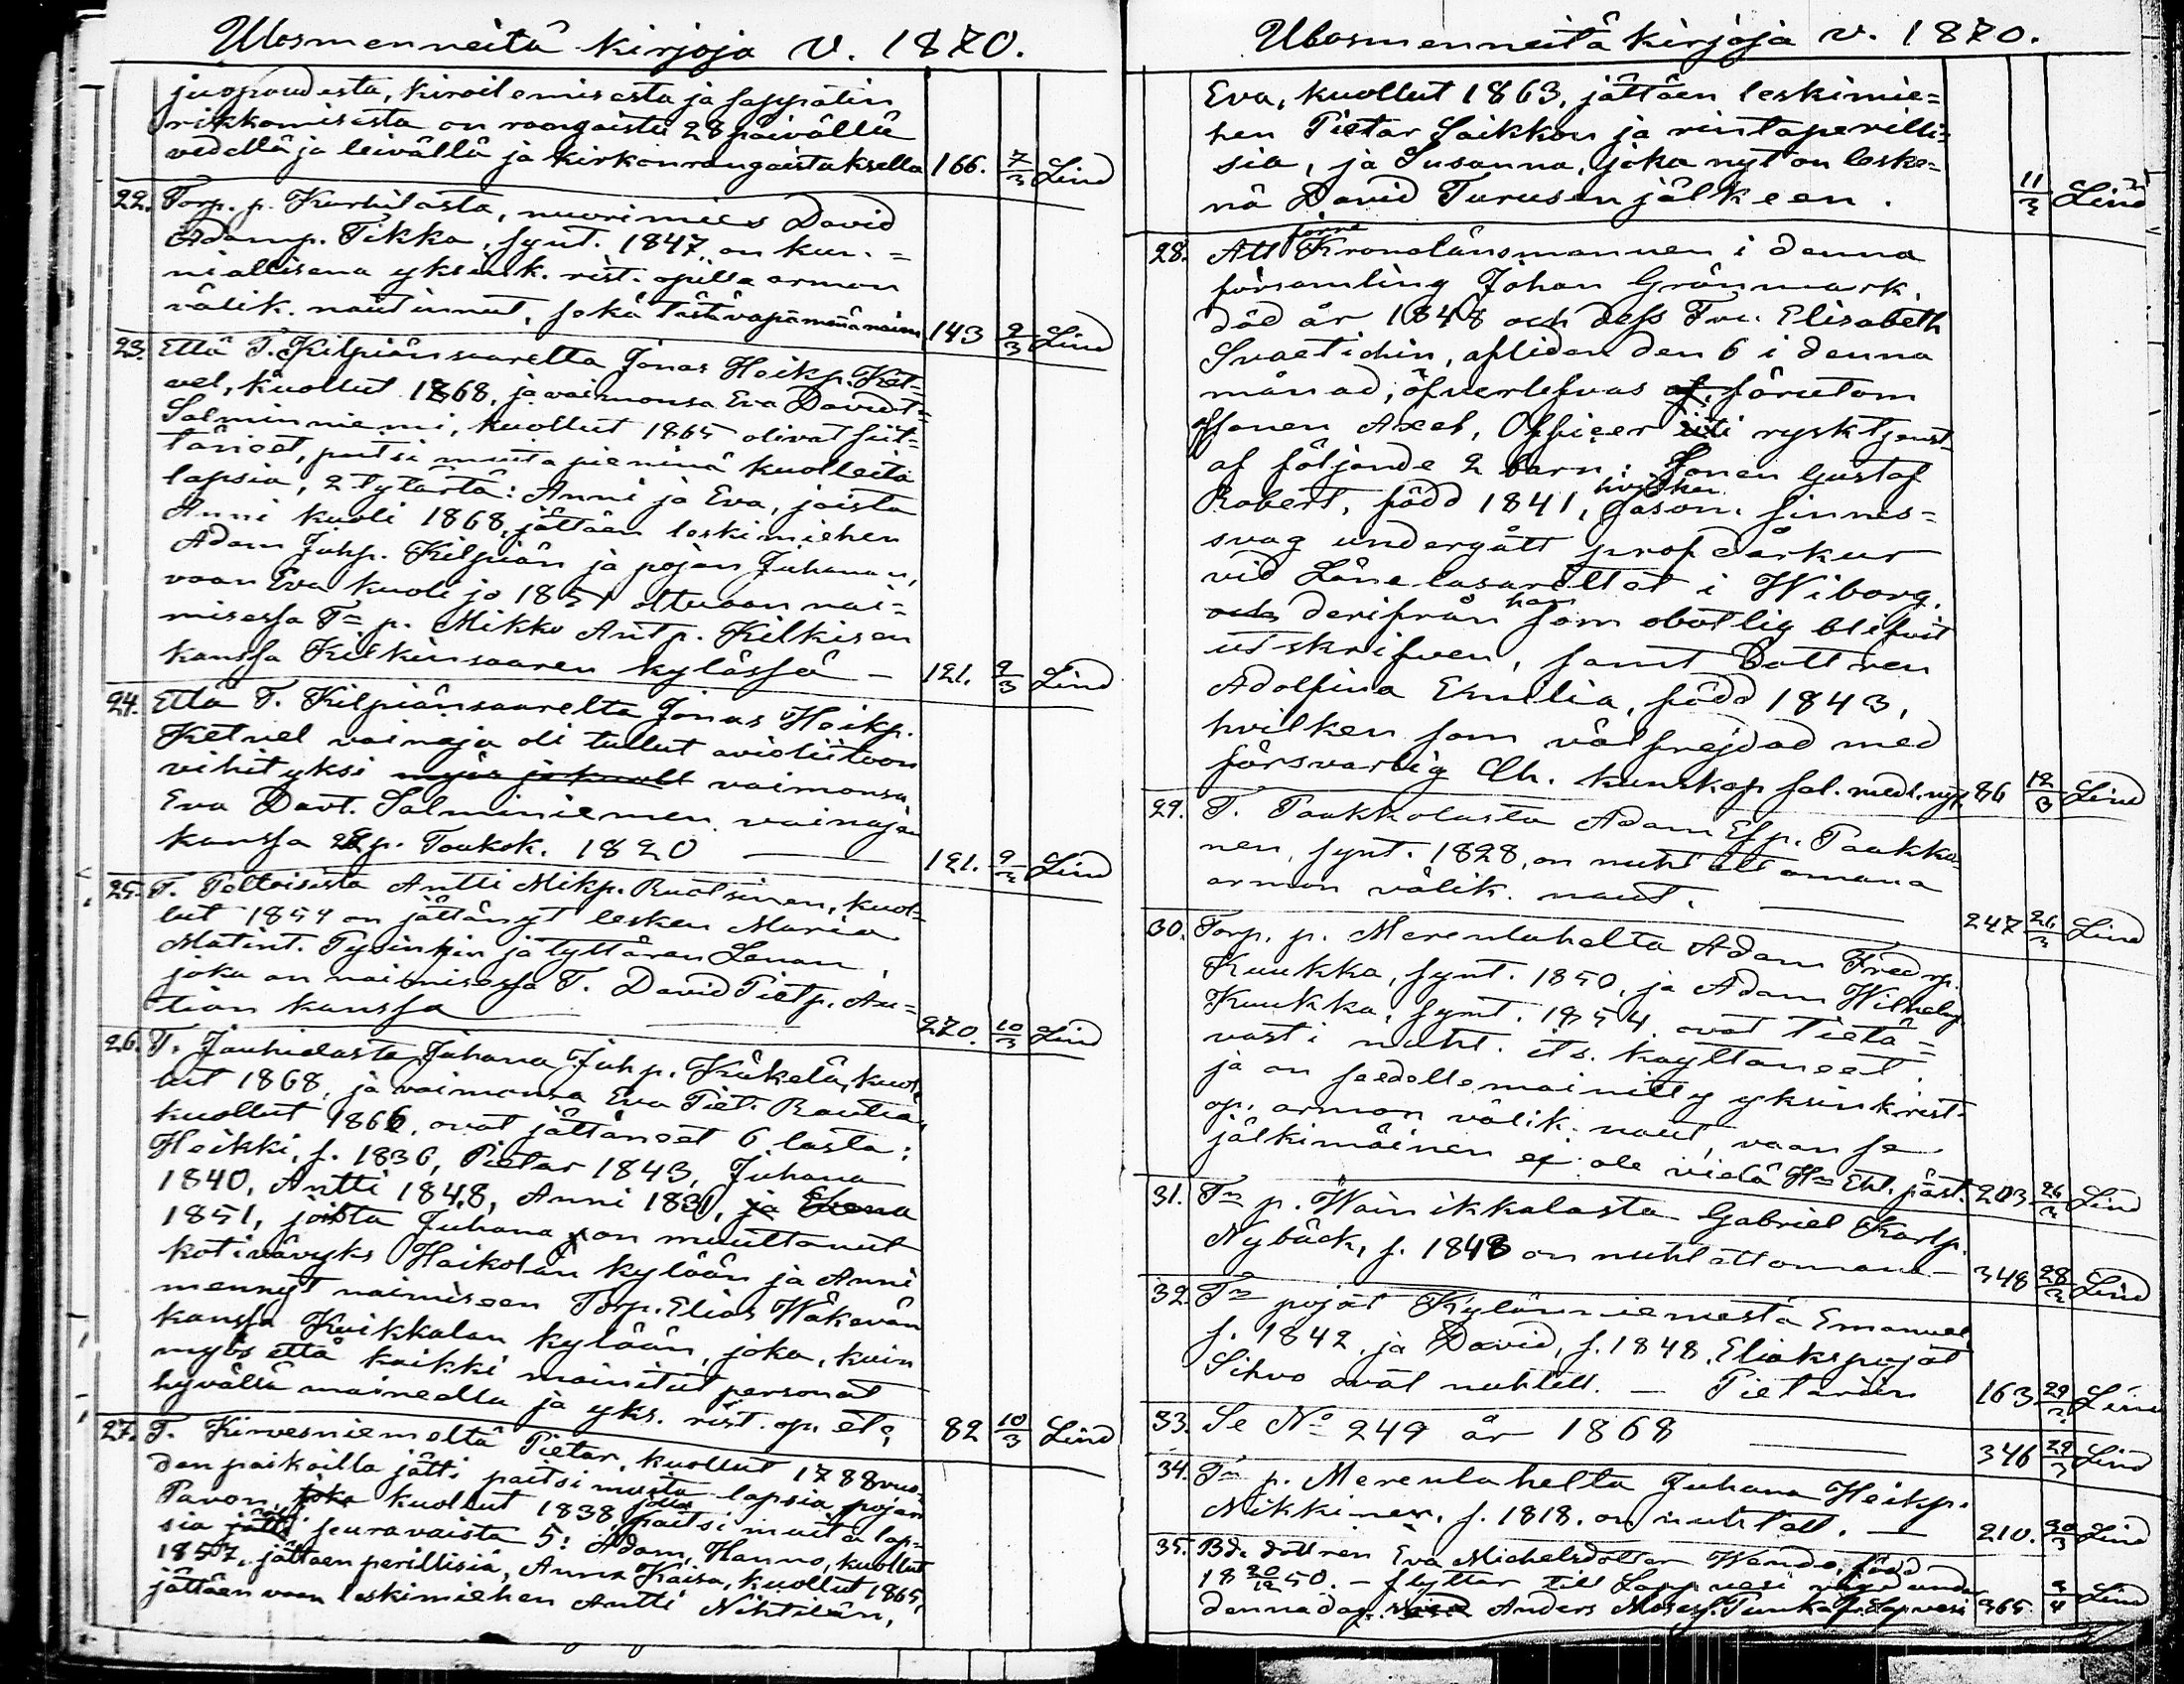 Ulosmenneitä kirjoja v. 1870.
juopoudesta, kiroilemisesta ja sappatin
rikkomisesta on rangaistu 28 päivällä
vedellä ja leivällä ja kirkonrangaistuksella 166. 7/3 Lind
22. Torp. p. Kurhilasta, nuorimies David
Adamp. Tikka, synt. 1847, on kun=
niallisena yksink. rist. opilla armon
välik. nautinnut, sekä tästä vapa mennä naim 143 9/3 Lind
23. Että T. Kilpiänsaarelta Jonas Heikp. Ket=
vel, kuollut 1868, ja vaimonsa Eva Davidt
Salminniemi, kuollut 1865 olivat siit=
täneet, paitsi muita pieninä kuolleita
lapsia, 2 tytärtä: Anni ja Eva, joista
Anni kuoli 1868, jättäen leskimiehen
Adam Juhp. Kilpiän ja pojan Juhanan,
vaan Eva kuoli jo 1851 oltuaan nai=
misessa Tn p. Mikko Antp. Kilkisen
kanssa Kilkinsaaren kylässä – 121. 9/3 Lind
24. Että T. Kilpiänsaarelta Jonas Heikp.
Ketvel vainaja oli tullut avioliitoon
vihityksi myös ja kuoll vaimonsa
Eva Davt. Salminiemen vainajan
kanssa 28 p. Toukok. 1820 — 121. 9/3 Lind
25. T. Peltoisista Antti Mikp. Ruotsinen, kuol=
lut 1854 on jättänyt lesken Maria
Matint. Tysinkin ja tyttären Lenan,
joka on naimisessa T. David Pietp. Au=
tion kanssa — 270. 10/3 Lind
26. T. Jouhialasta Juhana Juhp. Käkelä, kuol
lut 1868, ja vaimonsa Eva Piet. Rautia,
kuollut 1866, ovat jättäneet 6 lasta:
Heikki, s. 1836, Pietar 1843, Juhana
1840, Antti 1848, Anni 1831, ja Elena
1851, joista Juhana on muuttanut
kotivävyks Haikolan kylään ja Anni
mennyt naimiseen Torp. Elias Wäkevän
kanssa Kuikkalan kylään, joka, kuin
myös että kaikki mainitut personat
hyvällä maineella ja yks. rist. op. et; 82 10/3 Lind
27. T. Kirvesniemeltä Pietar, kuollut 1788 vuo=
den paikoilla jätti paitsi muita lapsia pojan
Pavon, joka kuollut 1838, jolta paitsi muita lap=
sia jätti seuravaista 5: Adam, Hanno, kuollut
1857, jättäen perillisiä, Anna Kaisa, kuollut 1865,
jättäen vaan leskimiehen Antti Nihtilän,
Ulosmenneitä kirjoja v. 1870.
Eva, kuollut 1863, jättäen leskimie=
hen Pietar Saikkon ja rintaperilli=
sia, ja Susanna, joka nyt on leske=
nä David Turusen jälkeen. 11/3 Lind
28. Att förre Kronolänsmannen i denna
församling Johan Grönmark,
död år 1848 och dess Fru Elisabeth
Svaetichin, afliden den 6 i denna
månad, öfverlefvas af, förutom
sonen Axel, Officer i rysk tjenst
af följande 2 barn: Sonen Gustaf
Robert, född 1841, hvilken såsom sinnes=
svag undergått prof dårkur
vid Länelasarettet i Wiborg,
och derifrån han som obotlig blifvit
utskrifven, samt Dottren
Adolfina Emilia, född 1843,
hvilken som välfrejdad med
försvarlig Ch. kunskap sal. medl. nyt 86 12/3 Lind
29. T. Paakkolasta Adam Esp. Paakko=
nen, synt. 1828, on nuhtettomana
armon välik. naut. — 247 26/3 Lind
30. Torp. p. Merenlahelta Adam Fredrp.
Kuukka, synt. 1850, ja Adam Wilhelmp
Kuukka, synt. 1854, ovat tietä=
västi nuht. its. käyttäneet,
ja on sedellemainitty yksink. rist.
op. armon välik. naut, vaan se
jälkimäinen ei ole vielä Hn Eht. päst. 203 26/3 Lind
31. Tn p. Wainikkalasta Gabriel Karlp.
Nybäck, s. 1848 on nuhtettomana – 348 28/3 Lind
32. Tn pojat Kylänniemestä Emanuel,
s. 1842, ja David, s. 1848, Eliakspojat
Sihvo ovat nuhtett. — Pietariin 163 29/3 Lind
33. Se No 249 år 1868 — 346 29/3 Lind
34. Tn p. Merenlahelta Juhana Heikp.
Mikkinen, s. 1818, on nuhtett. — 210. 30/3 Lind
35. Bd. dottren Eva Michelsdotter Wando, född
18 20/12 50. – flyttar till Lappvesi under
denna dag. Anders Mosess. Tunka fr. Lapvesi 365. 3/4 Lind